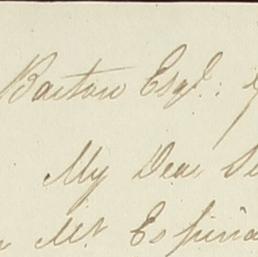 Barton Esqr.
My Dear
Mr. Espina